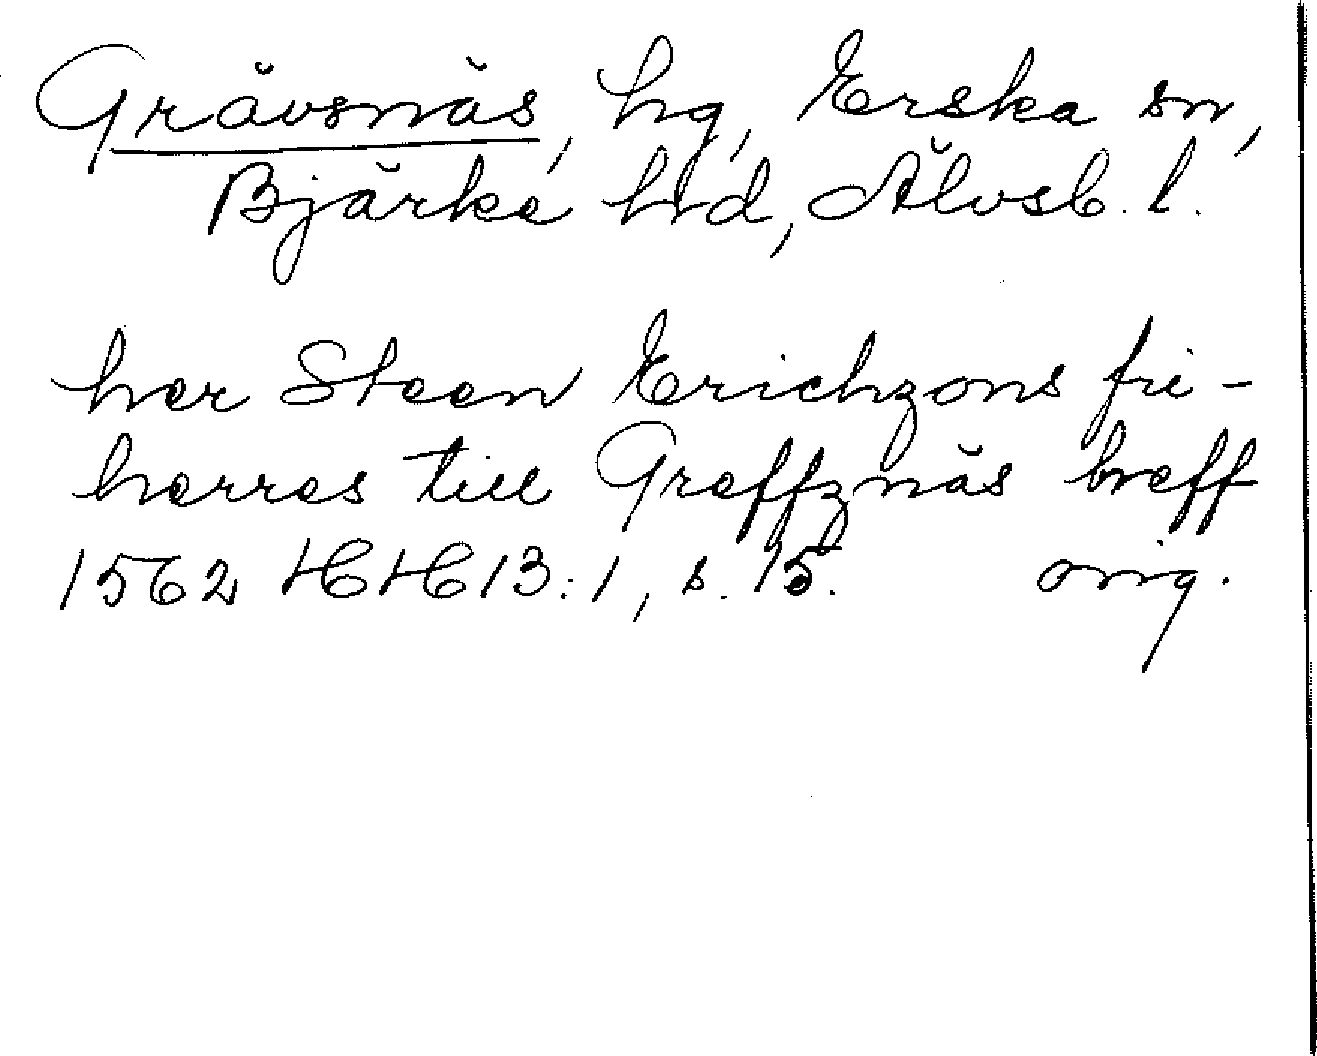 Grävsnäs, hg, Erska sn,
Bjärke hd, Älvsb. l.
her Steen Erichzons fri-
herres till Greffznäs breff
1562 HH 13:1, s. 15. orig.